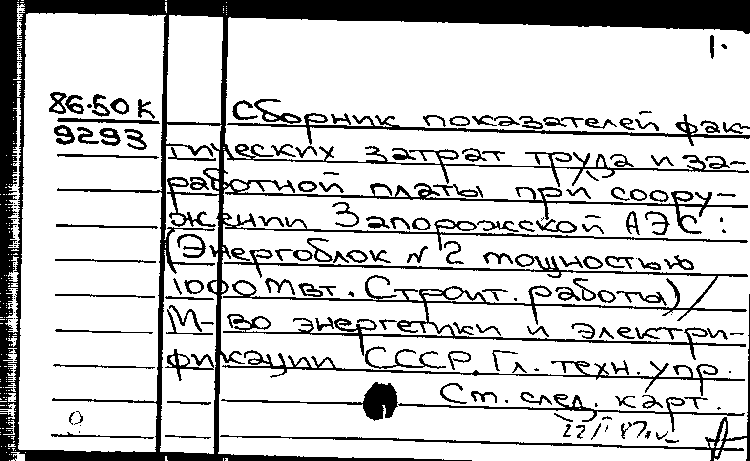 1.
86.50К
9293
Сборник показателей фак-
тических затрат труда и за-
работной платы при соору-
жении Запорожской АЭС:
(Энергоблок N 2 мощностью
1000 Мвт. Строит. работы) /
М-во энергетики и электри-
фикации СССР, Гл. техн. упр.
Ст. след. карт.